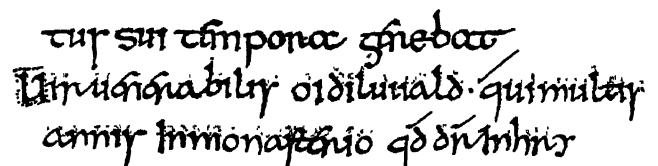 tur sui tempora gerebat
Uir uenerabilis oidiluuald · qui multis
annis in monasterio qđ dr̄ inhry